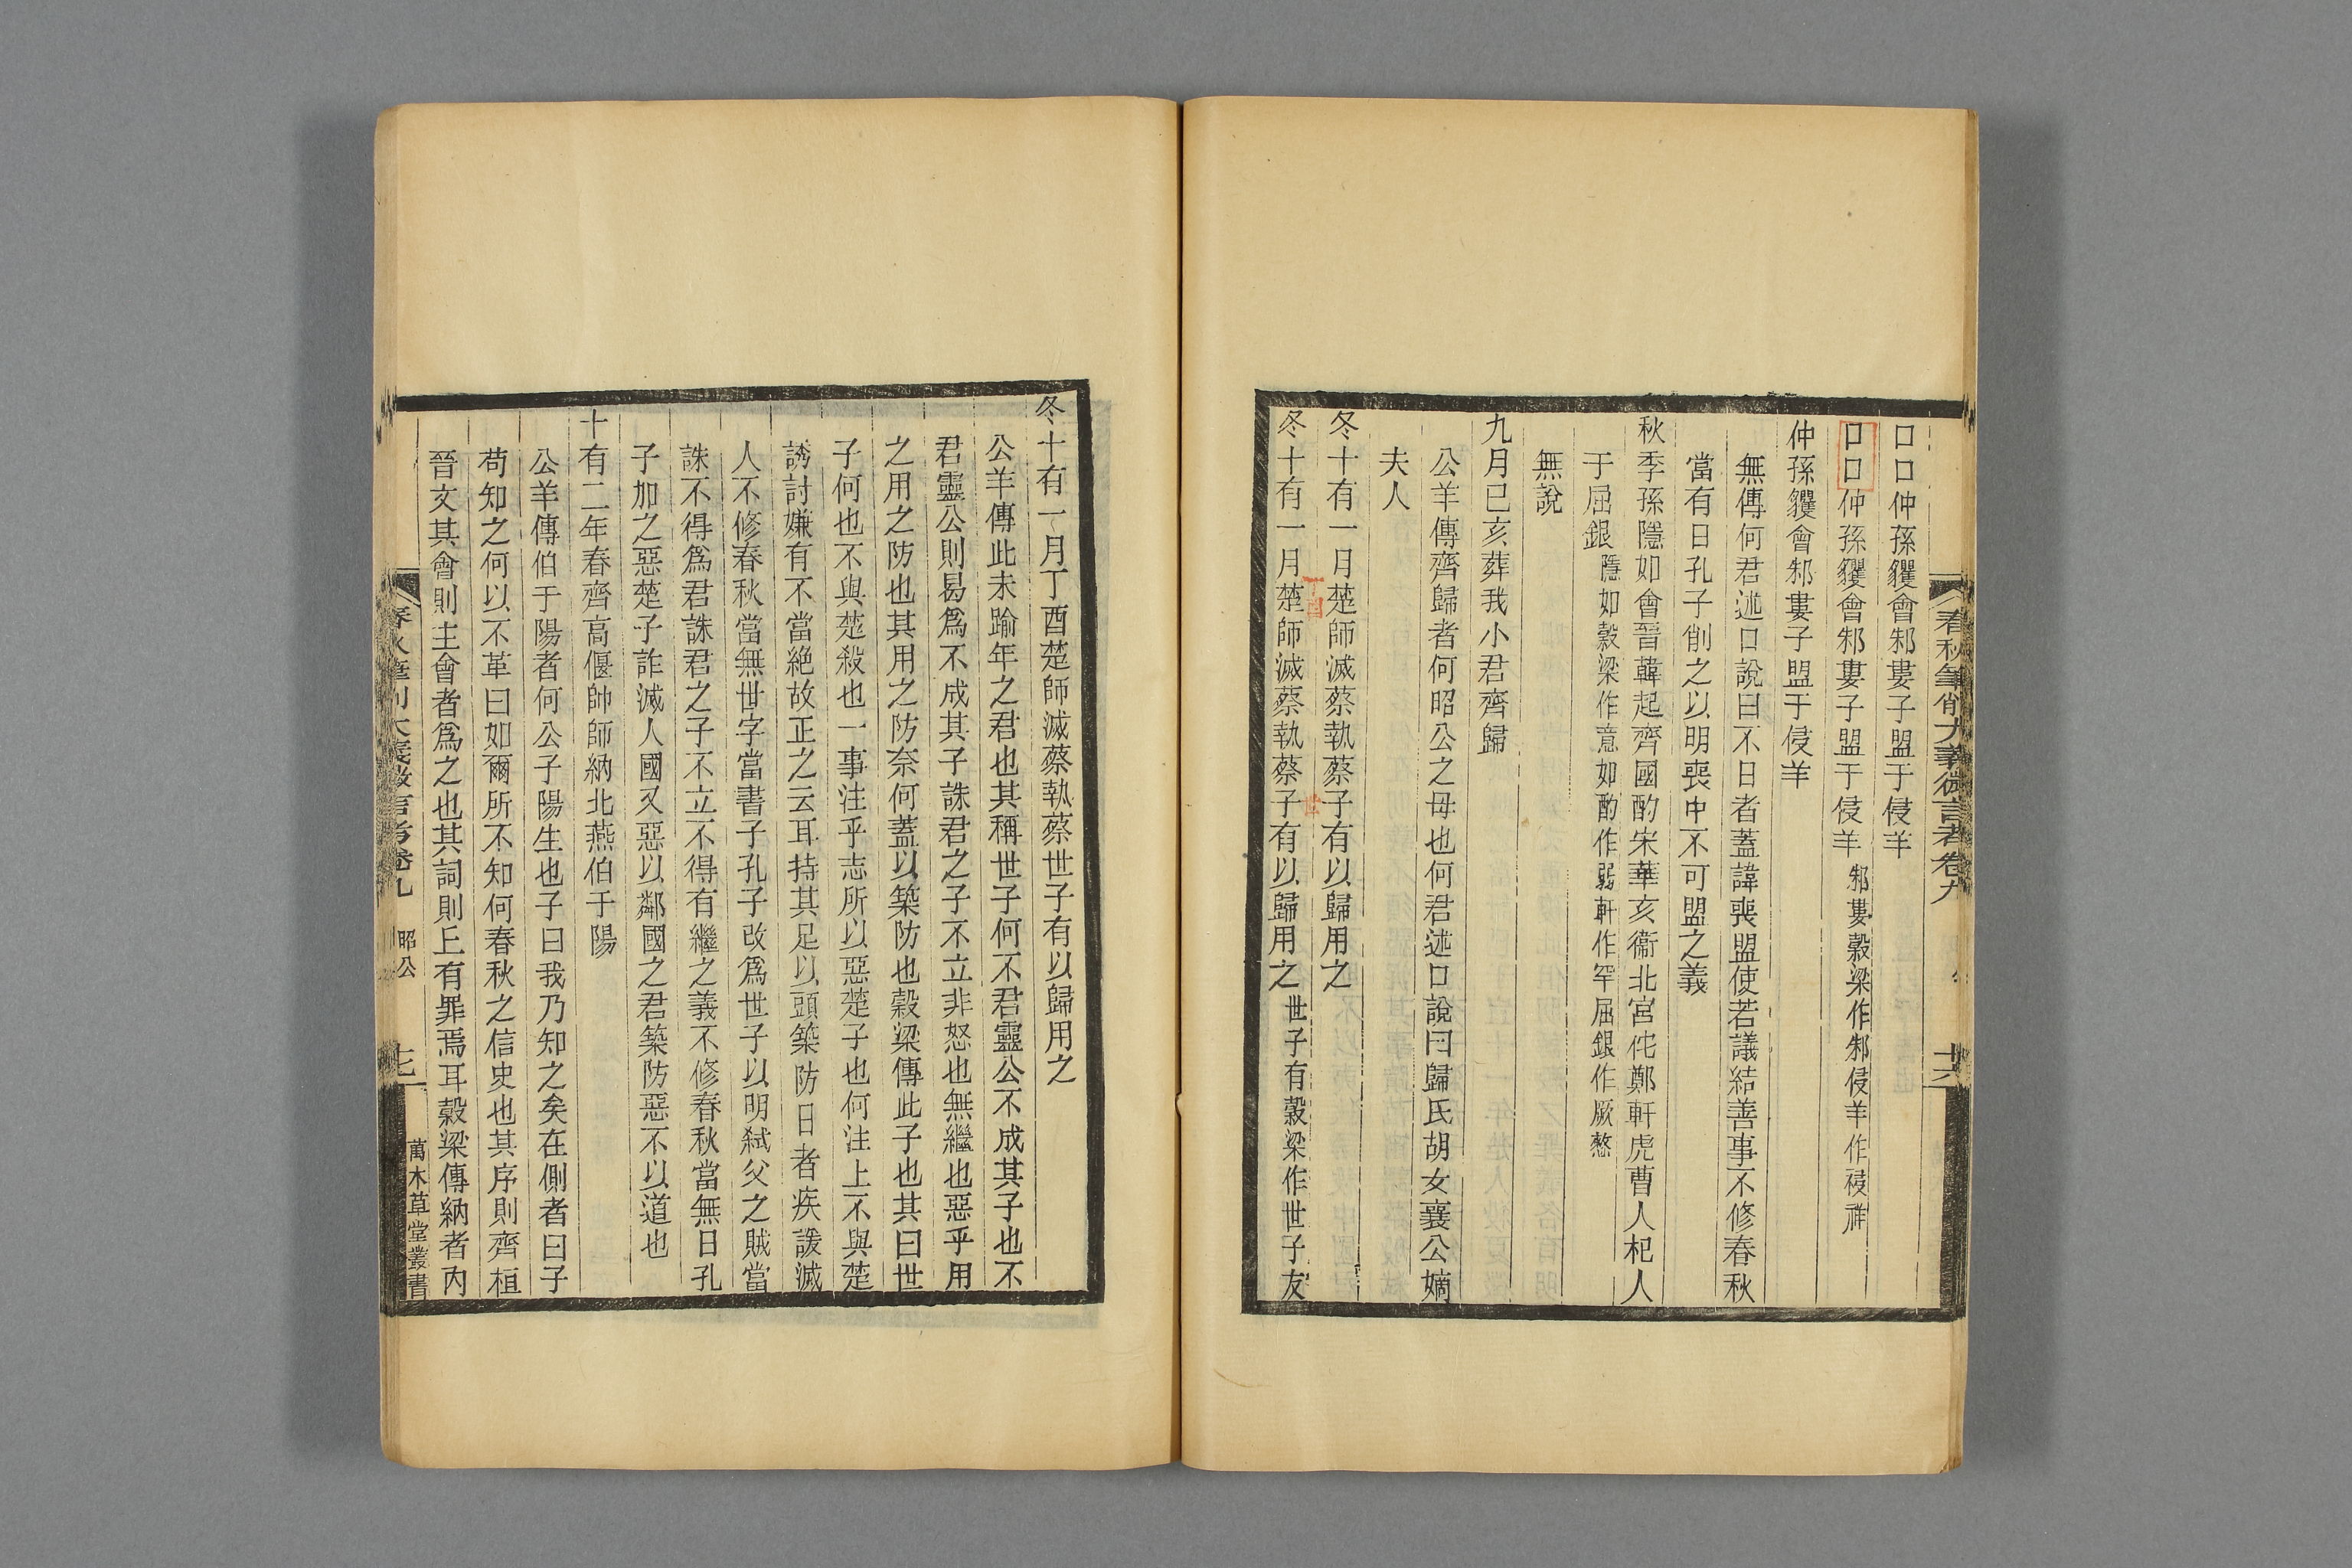 春秋筆削大義微言考卷九
口口仲孫貜會邾婁子盟于侵羊
口口仲孫貜會邾婁子盟于侵羊邾婁穀梁作邾侵羊作祲祥
仲孫貜會邾婁子盟于侵羊
無傳何君述口說曰不日者蓋諱喪盟使若議結善事不修春秋
當有日孔子削之以明喪中不可盟之義
秋季孫隱如會晉韓起齊國酌宋華亥衞北宮佗鄭軒虎曹人杞人
于屈銀隱如穀梁作意如酌作弱軒作罕屈銀作厥憖
無說
九月己亥葬我小君齊歸
公羊傳齊歸者何昭公之母也何君述口說曰歸氏胡女襄公嫡
夫人
冬十有一月楚師滅蔡執蔡子有以歸用之
丁酉
世
冬十有一月楚師滅蔡執蔡子有以歸用之世子有穀梁作世子友
冬十有一月丁酉楚師滅蔡執蔡世子有以歸用之
公羊傳此未踰年之君也其稱世子何不君靈公不成其子也不
君靈公則易爲不成其子誅君之子不立非怒也無繼也惡乎用
之用之防也其用之防奈何蓋以築防也穀梁傳此子也其曰世
子何也不與楚殺也一事注乎志所以惡楚子也何注上不與楚
誘討嫌有不當絶故正之云耳持其足以頭築防日者疾諼滅
人不修春秋當無世字當書子孔子改爲世子以明弑父之賊當
誅不得爲君誅君之子不立不得有繼之義不修春秋當無日孔
子加之惡楚子詐滅人國又惡以鄰國之君築防惡不以道也
十有二年春齊高偃帥師納北燕伯于陽
公羊傳伯于陽者何公子陽生也子曰我乃知之矣在側者曰子
苟知之何以不革曰如爾所不知何春秋之信史也其序則齊桓
晉文其會則主會者爲之也其詞則丘有罪焉耳穀梁傳納者內
春秋筆削大義微言考卷九 昭公 萬木草堂叢書